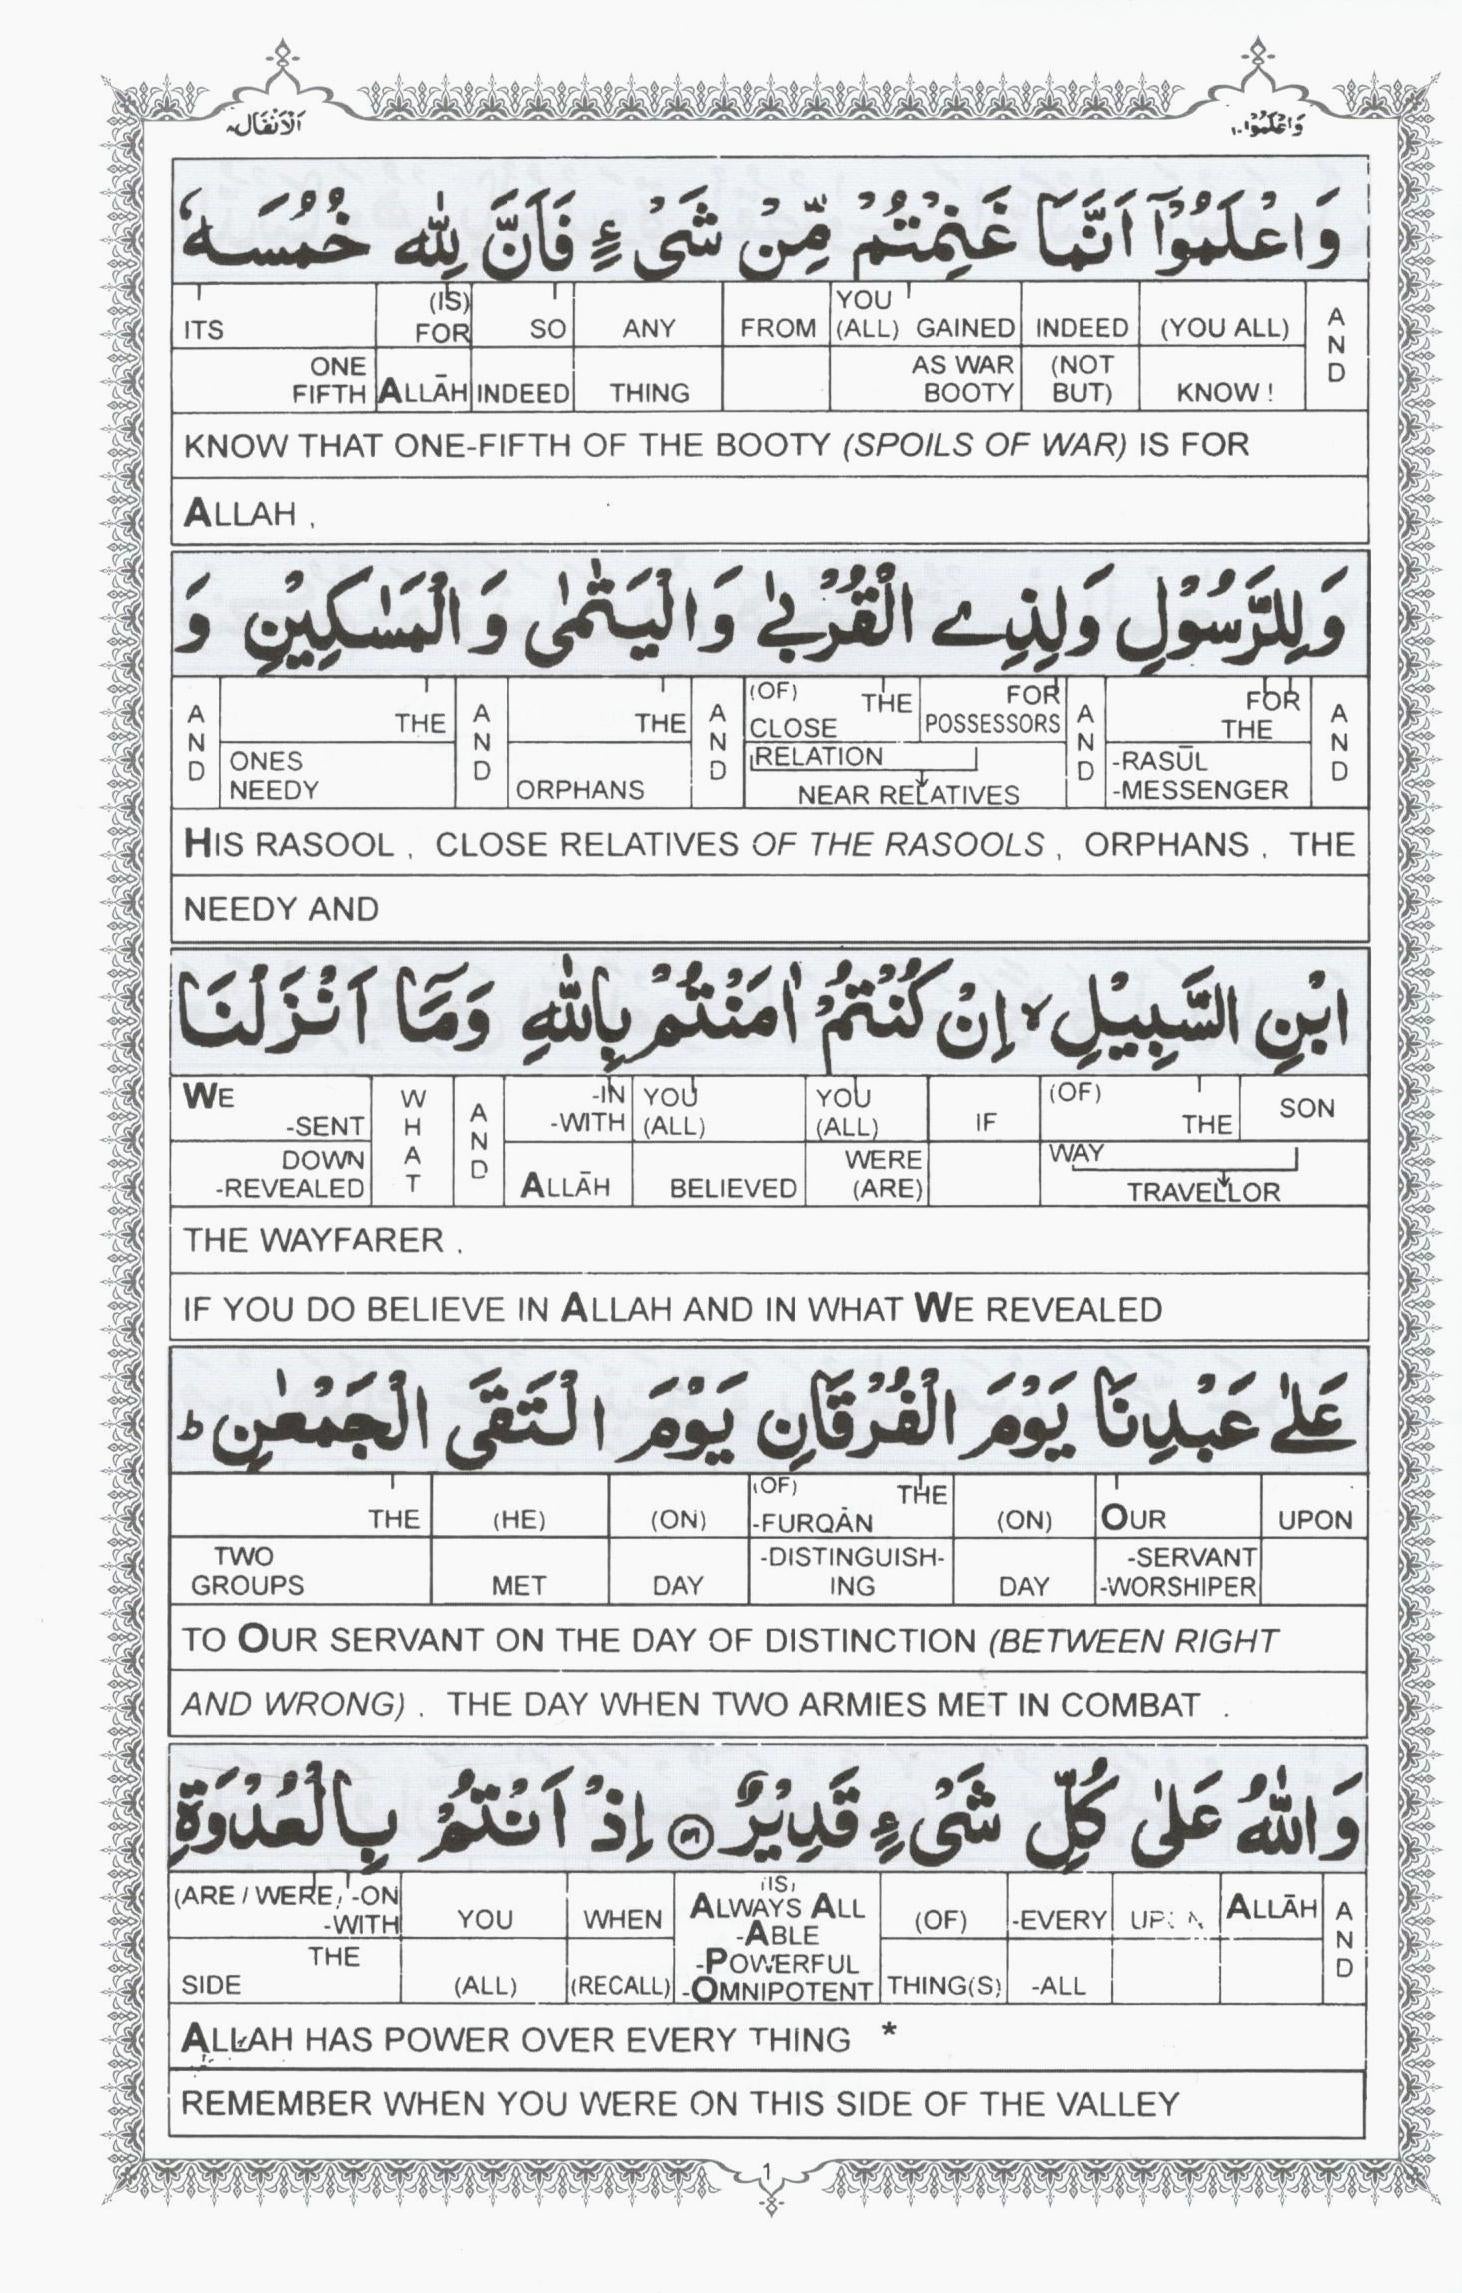 وَاعْلَمُوْا ۱۰
اَلْاَنْفَال ۸
وَاعْلَمُوْٓا اَنَّمَا غَنِمْتُمْ مِّنْ شَىْءٍ فَاَنَّ لِلّٰهِ خُمُسَهٗ
ITS (IS) FOR SO ANY FROM YOU (ALL) GAINED INDEED (YOU ALL) AND
ONE FIFTH ALLĀH INDEED THING AS WAR BOOTY (NOT BUT) KNOW !
KNOW THAT ONE-FIFTH OF THE BOOTY (SPOILS OF WAR) IS FOR
ALLAH ,
وَلِلرَّسُوْلِ وَلِذِى الْقُرْبٰى وَالْيَتٰمٰى وَالْمَسٰكِيْنِ وَ
AND THE AND THE AND (OF) CLOSE THE FOR POSSESSORS AND FOR THE AND
ONES NEEDY ORPHANS RELATION NEAR RELATIVES -RASŪL -MESSENGER
HIS RASOOL , CLOSE RELATIVES OF THE RASOOLS , ORPHANS , THE
NEEDY AND
ابْنِ السَّبِيْلِ ۙ اِنْ كُنْتُمْ اٰمَنْتُمْ بِاللّٰهِ وَمَآ اَنْزَلْنَا
WE -SENT WHAT AND -IN -WITH YOU (ALL) YOU (ALL) IF (OF) THE SON
DOWN -REVEALED ALLĀH BELIEVED WERE (ARE) WAY TRAVELLOR
THE WAYFARER .
IF YOU DO BELIEVE IN ALLAH AND IN WHAT WE REVEALED
عَلٰى عَبْدِنَا يَوْمَ الْفُرْقَانِ يَوْمَ الْتَقَى الْجَمْعٰنِ ؕ
THE (HE) (ON) (OF) THE -FURQĀN (ON) OUR UPON
TWO GROUPS MET DAY -DISTINGUISH-ING DAY -SERVANT -WORSHIPER
TO OUR SERVANT ON THE DAY OF DISTINCTION (BETWEEN RIGHT
AND WRONG) . THE DAY WHEN TWO ARMIES MET IN COMBAT .
وَاللّٰهُ عَلٰى كُلِّ شَىْءٍ قَدِيْرٌ اِذْ اَنْتُمْ بِالْعُدْوَةِ
(ARE / WERE) -ON -WITH YOU WHEN (IS) ALWAYS ALL -ABLE (OF) -EVERY UPON ALLĀH AND
THE SIDE (ALL) (RECALL) -POWERFUL -OMNIPOTENT THING(S) -ALL
ALLAH HAS POWER OVER EVERY THING *
REMEMBER WHEN YOU WERE ON THIS SIDE OF THE VALLEY
1